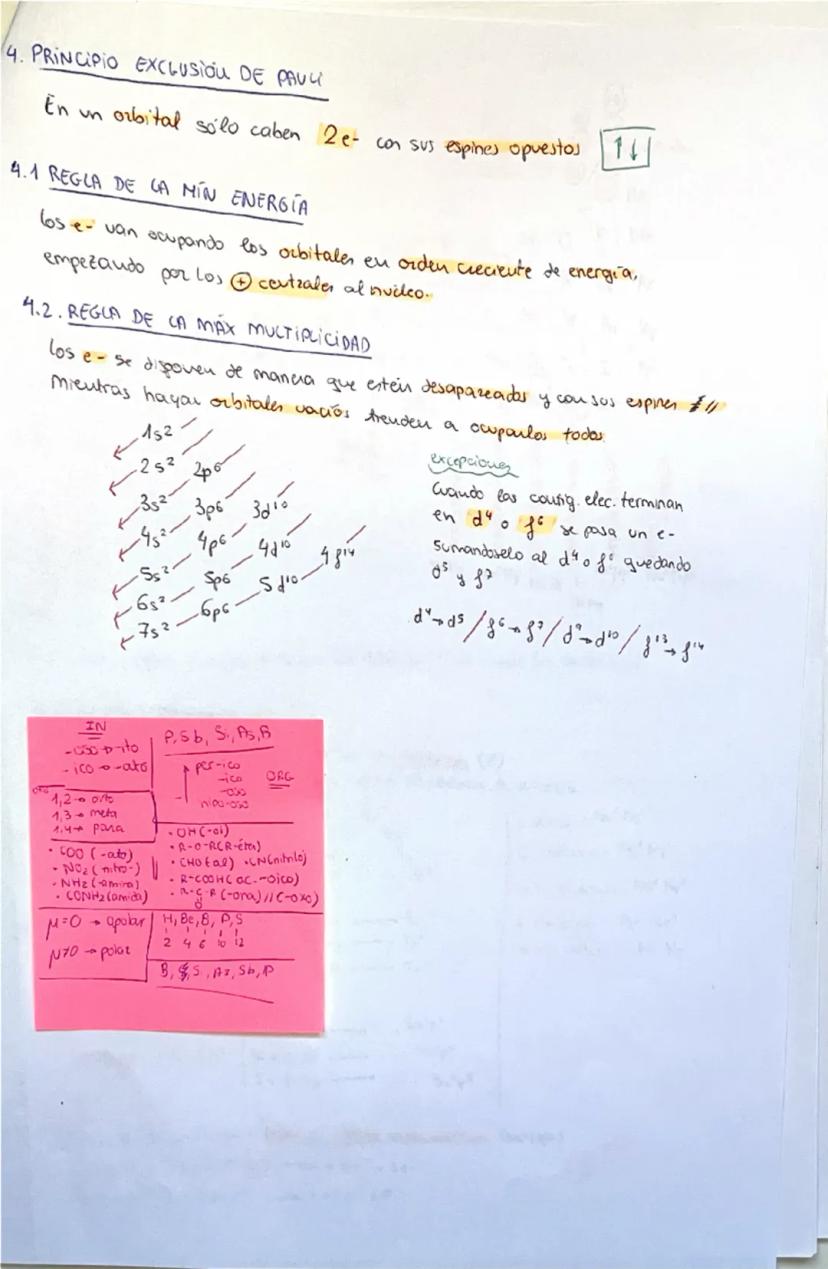 4. PRINCIPIO EXCLUSIÓN DE PAULI
En un orbital sólo caben 2e- con sus espines opuestos ↑↓
4.1 REGLA DE LA MÍN ENERGÍA
Los e- van ocupando los orbitales en orden creciente de energía,
empezando por los ⊕ centrales al núcleo.
4.2. REGLA DE LA MÁX MULTIPLICIDAD
Los e- se disponen de manera que estén desapareados y con sus espines //
Mientras hayan orbitales vacíos tienden a ocuparlos todos.
1s2
2s2 2p6
3s2 3p6 3d10
4s2 4p6 4d10 4f14
5s2 5p6 5d10
6s2 6p6
7s2
excepciones
Cuando las config. elec. terminan
en d4 o f6 se pasa un e-
sumandoselo al d4 o f6 quedando
d5 y f7
d4→d5 / f6→f7 / d9→d10 / f13→f14
IN
-oso→-ito
-ico→-ato
P, Sb, Si, As, B
per-ico
-ico
-oso
hipo-oso
ORG
1,2→orto
1,3→meta
1,4→para
• COO (-ato)
• NO2 (nitro-)
• NH2 (-amina)
• CONH2 (amida)
• OH (-ol)
• R-O-R (R-éter)
• CHO (al) • CN (nitrilo)
• R-COOH (ac. -oico)
• R-C-R (-ona) // (-oxo)
O
μ=0 → apolar
μ≠0 → polar
H, Be, B, P, S
2 4 6 10 12
B, S, Si, As, Sb, P